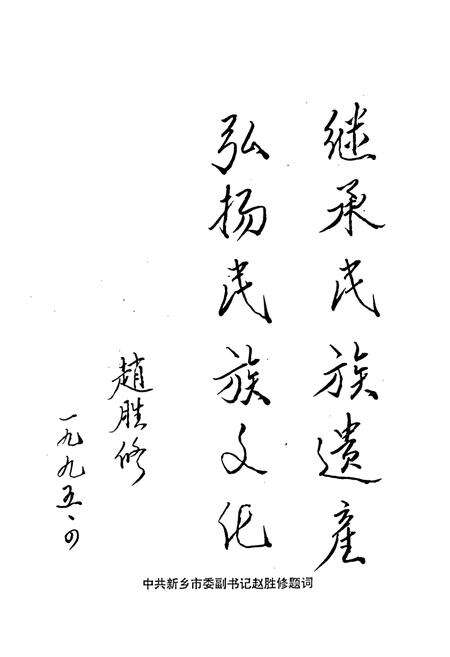 继承民族遗产
弘扬民族文化
趙胜修
一九九五、四
中共新乡市委副书记赵胜修题词